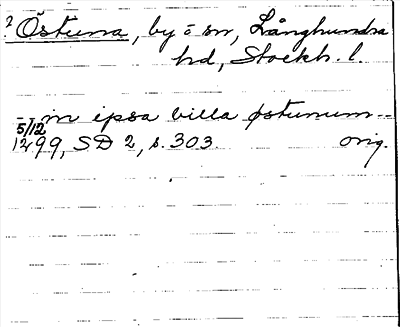 ? Östuna, by o sn, Långhundra
hd, Stockh. l.
-- in ipsa villa østunum --
5/12
1299, SD 2, s. 303. orig.